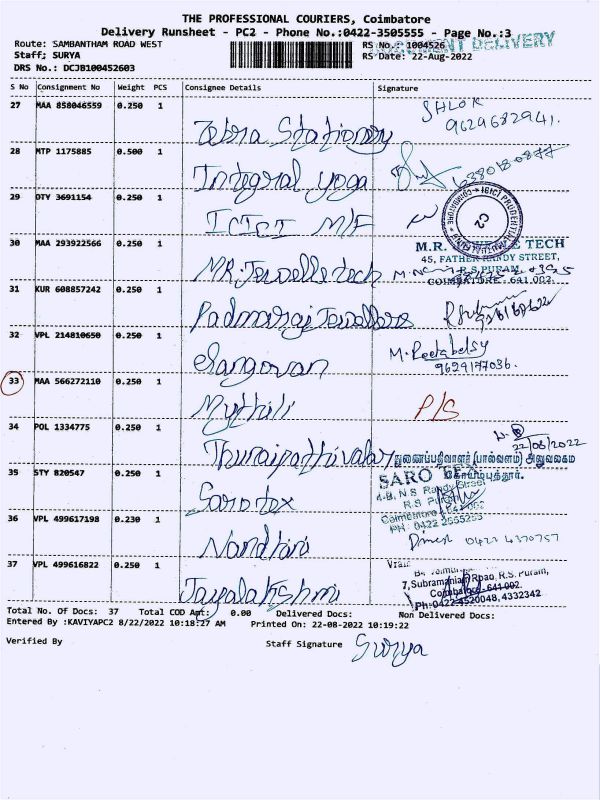 THE PROFESSIONAL COURIERS, Coimbatore
Delivery Runsheet - PC2 - Phone No.:0422-3505555 - Page No.:3
Route: SAMBANTHAM ROAD WEST
RS No.: 1004526
DOCUMENT DELIVERY
Staff: SURYA
RS Date: 22-Aug-2022
DRS No.: DCJB100452603
S No Consignment No Weight PCS Consignee Details Signature
27 MAA 858046559 0.250 1
Zebra Stationery
SHLOK
9629682941.
28 MTP 1175885 0.500 1
Integral yoga
29 DTY 3691154 0.250 1
ICICI M/F
ICICI PRUDENTIAL
COIMBATORE
C2
30 MAA 293922566 0.250 1
MR. Jewelle tech
M.R. TECH
45, FATHER RANDY STREET,
R.S PURAM,
COIMBATORE - 641 002.
31 KUR 608857242 0.250 1
Padmaraj Jewellers
32 VPL 214810650 0.250 1
Elangovan
9629177036.
33 MAA 566272110 0.250 1
Mythili
P/S
34 POL 1334775 0.250 1
22/08/2022
துணைப்பதிவாளர் (பால்வளம்) அலுவலகம்
கோயம்புத்தூர்.
35 STY 820547 0.250 1
Saro tex
SARO TEX
4-B, N.S Randy Street
R.S Puram
Coimbatore - 641 002
PH : 0422 2555253
36 VPL 499617198 0.230 1
Nandhini
Dinesh 0422 4370757
37 VPL 499616822 0.250 1
Jayalakshmi
7,Subramaniam Road, R.S. Puram,
Coimbatore - 641 002.
Ph:0422-4520048, 4332342
Total No. Of Docs: 37 Total COD Amt: 0.00 Delivered Docs: Non Delivered Docs:
Entered By :KAVIYAPC2 8/22/2022 10:18:27 AM Printed On: 22-08-2022 10:19:22
Verified By Staff Signature Surya